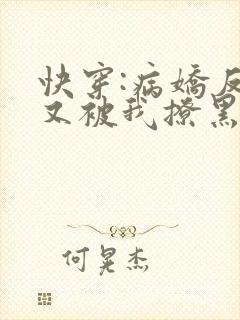 快穿:病娇反
又被我撩黑
何晃杰